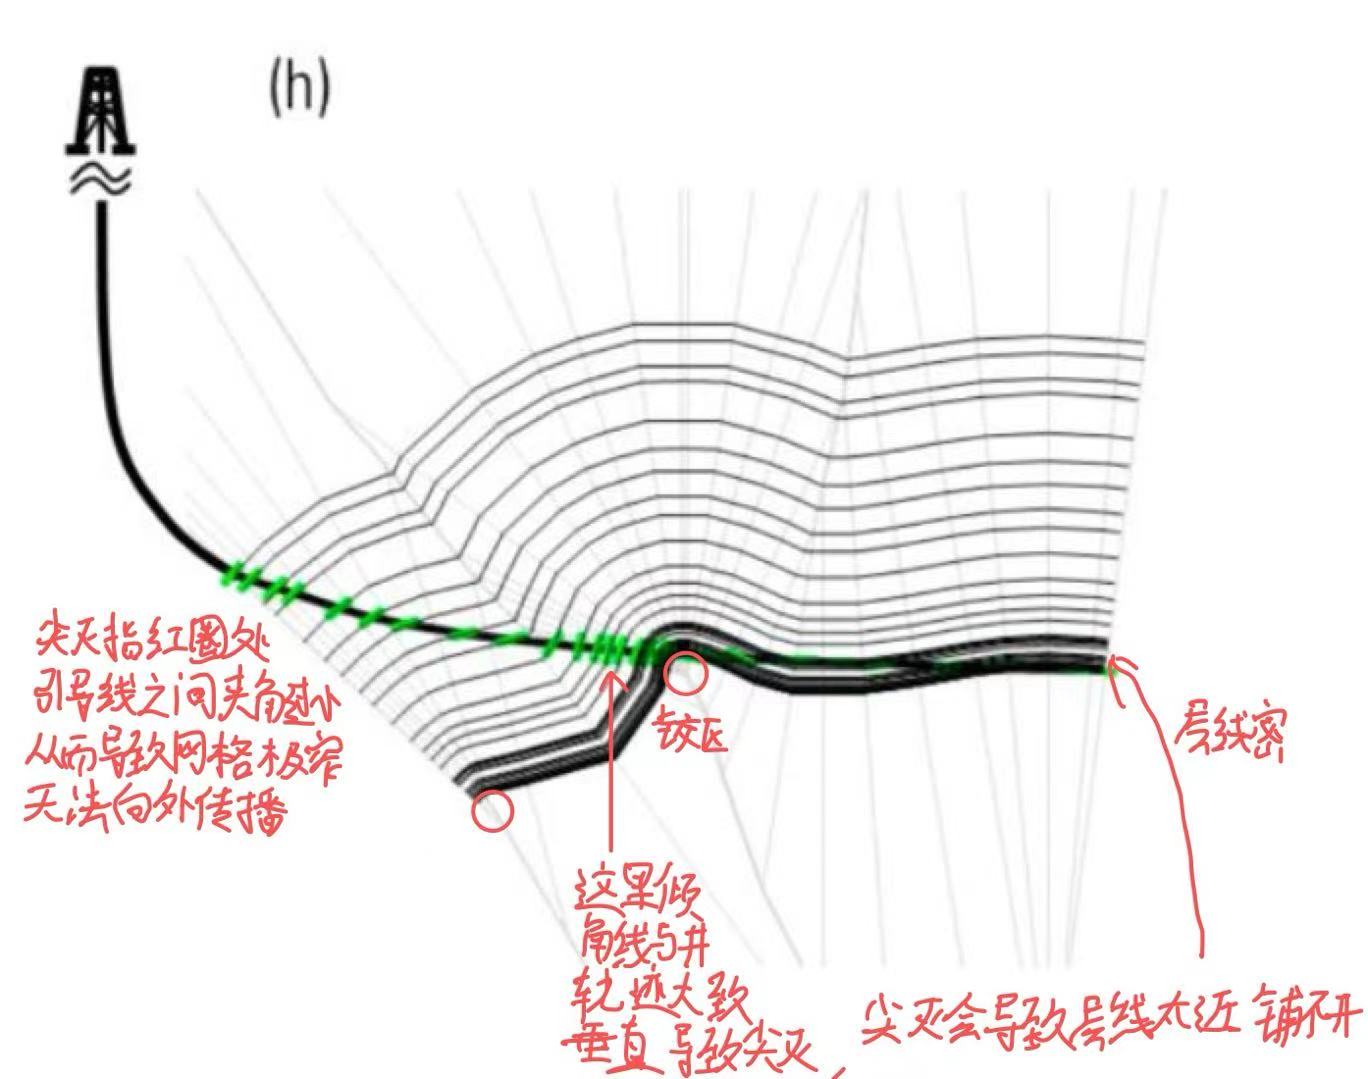 (h)
尖灭指红圈处
引导线之间夹角过小
从而导致网格极窄
无法向外传播
铰区
层线密
这里倾
角线与井
轨迹大致
垂直导致尖灭
尖灭会导致层线太近 铺不开